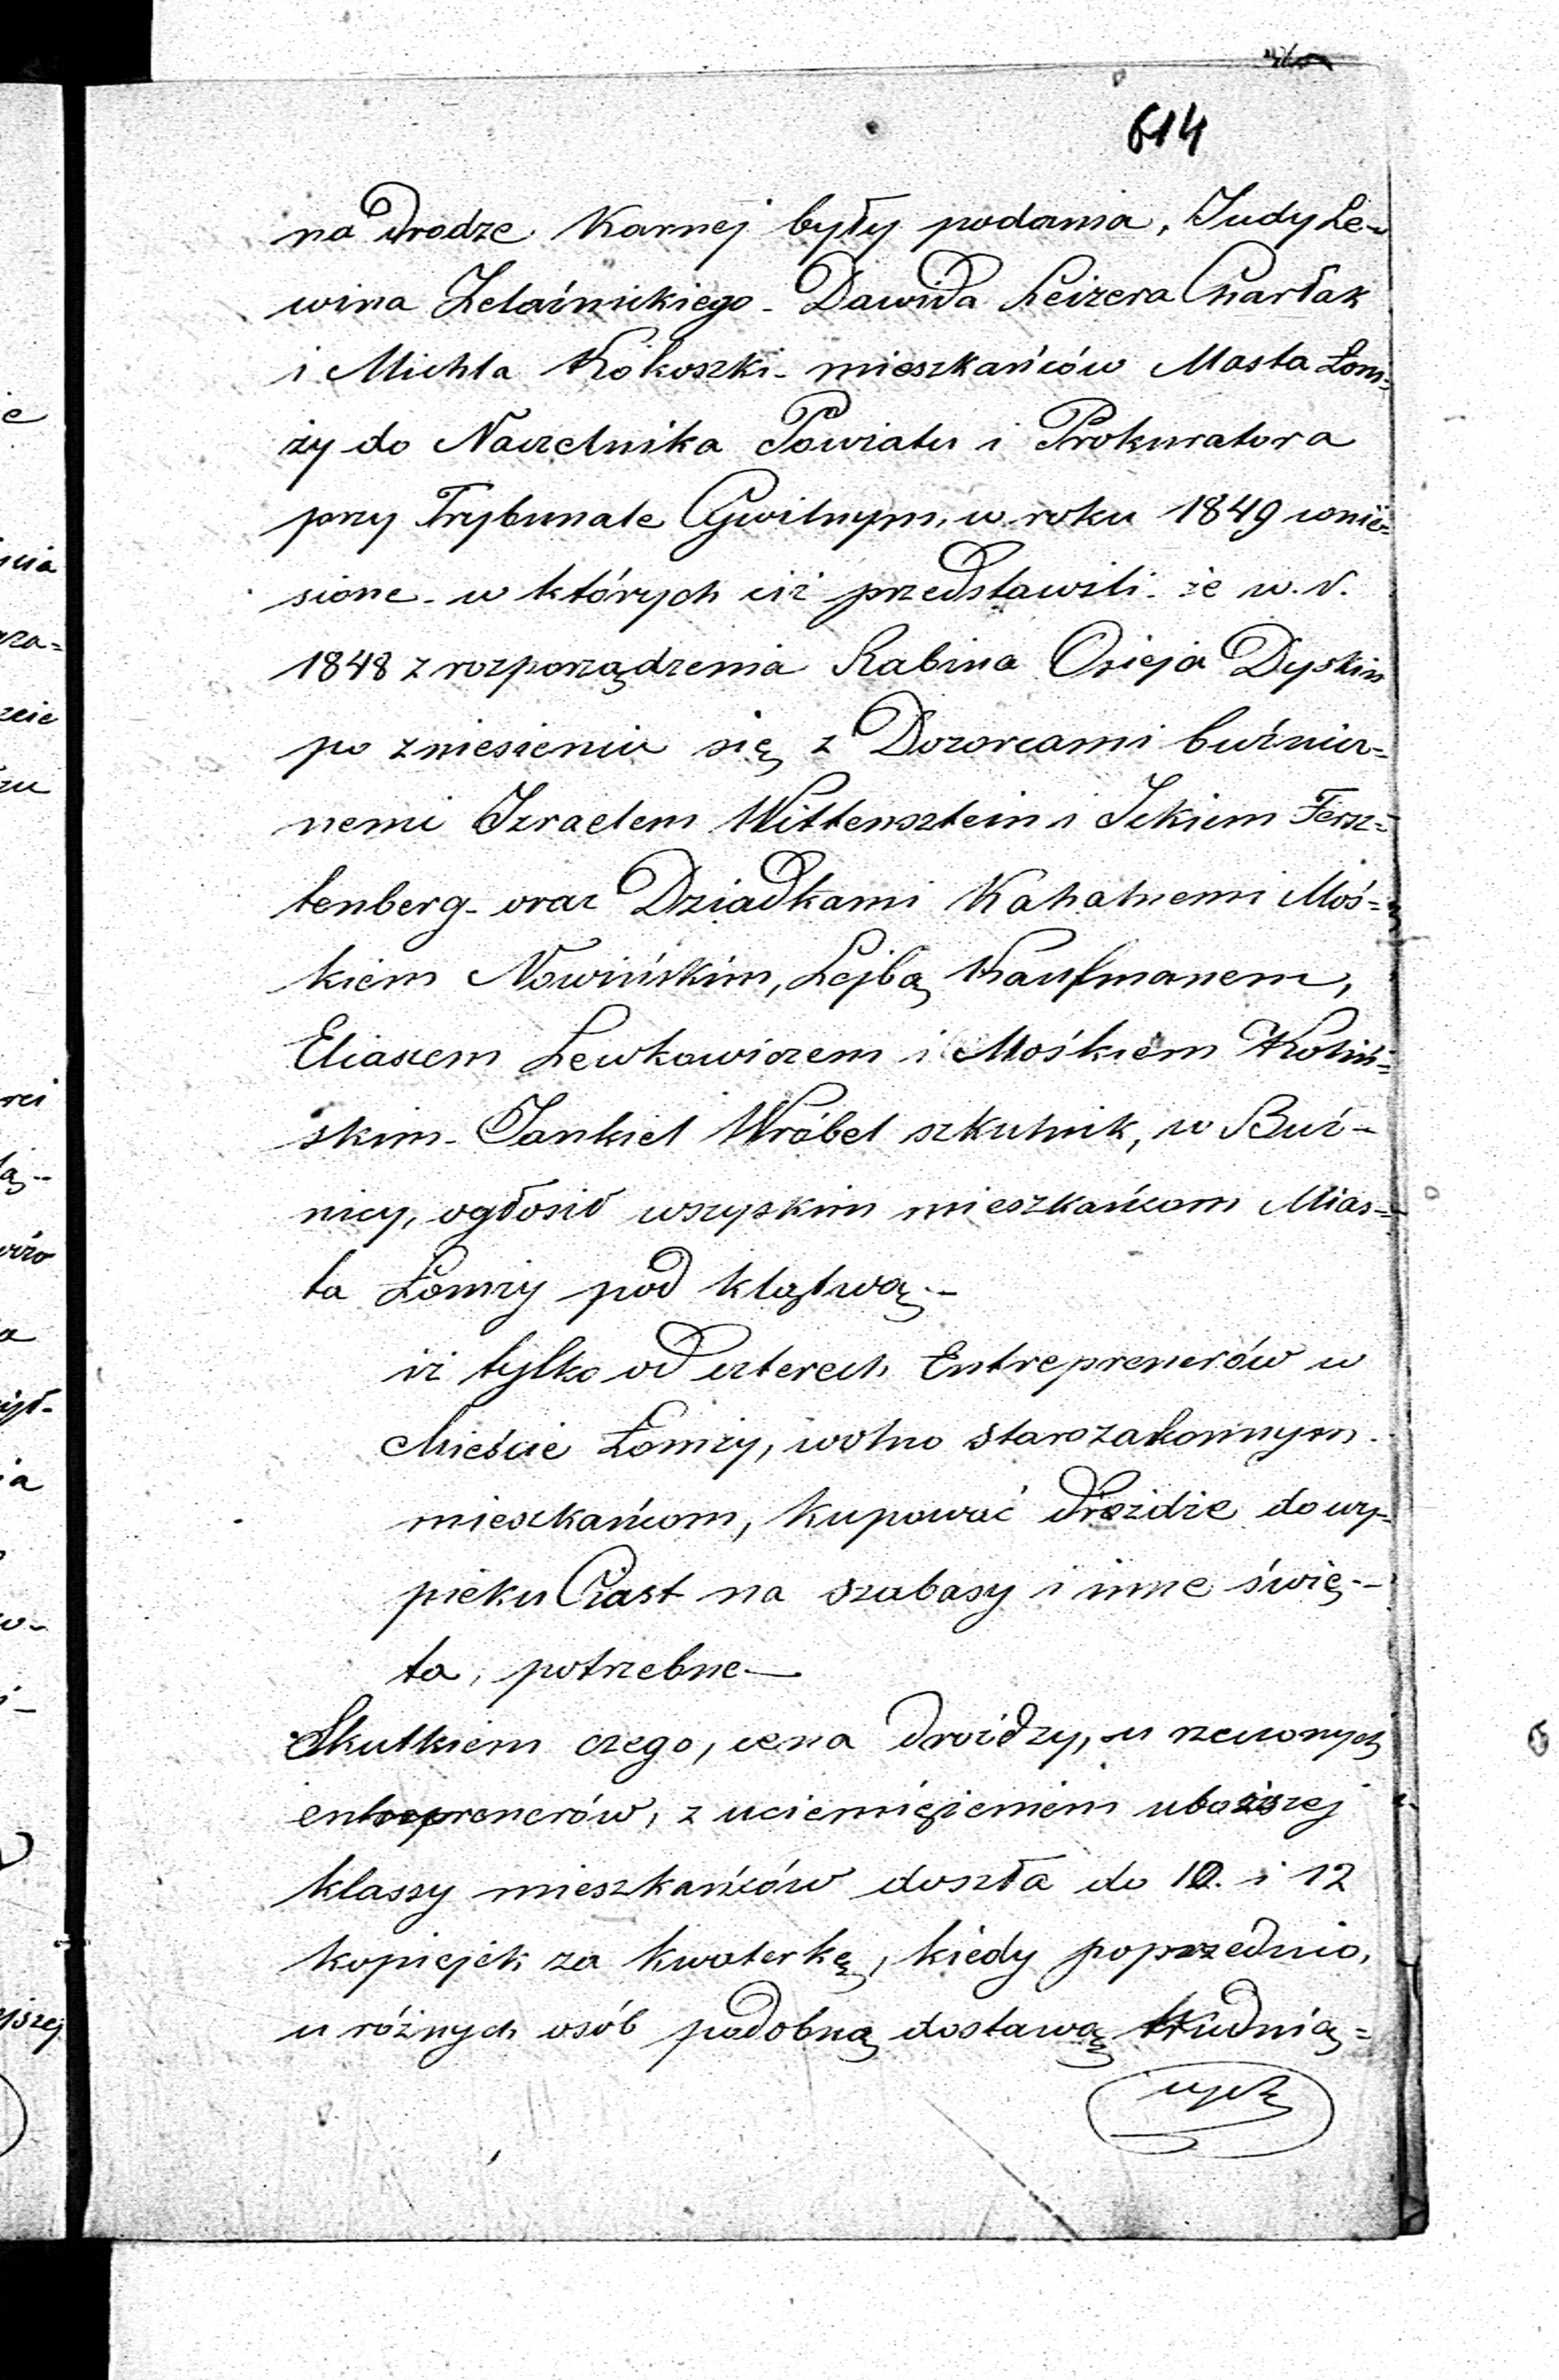 614
na drodze Karnej były podania, Judy Le-
wina Zelaźnickiego - Dawida Leizera Charłak
i Michla Kokoszki - mieszkańców Masta Łom=
ży do Naczelnika Powiatu i Prokuratora
przy Trybunale Cywilnym, w roku 1849 wnie=
sione - w których ciż przedstawili - że w. r.
1848 z rozporządzenia Rabina Osieja Dyskin
po zniesieniu się z Dozorcami bużnicz=
nemi Izraelem Wittensztein i Ickiem Fersz=
tenberg - oraz Dziadkami Kahalnemi Moś=
kiem Nowińskim, Lejbą Kaufmanem,
Eliaszem Lewkowiczem i Mośkiem Koliń=
skim - Jankiel Wróbel szkulnik, w Buż-
nicy, ogłosił wszyskim mieszkańcom Mias=
ta Łomży pod klątwą -
iż tylko od czterech Entreprenerów w
Mieście Łomży, wolno starozakonnym
mieszkańcom, kupować drożdże do wy=
pieku Ciast na szabasy i inne świę-
ta, potrzebne —
Skutkiem czego, cena drożdży, u rzeczonych
entreprenerów, z uciemiężeniem uboższej
klassy mieszkańców doszła do 10. i 12
kopiejek za kwaterkę, kiedy poprzednio,
u różnych osób podobną dostawą trudnią=